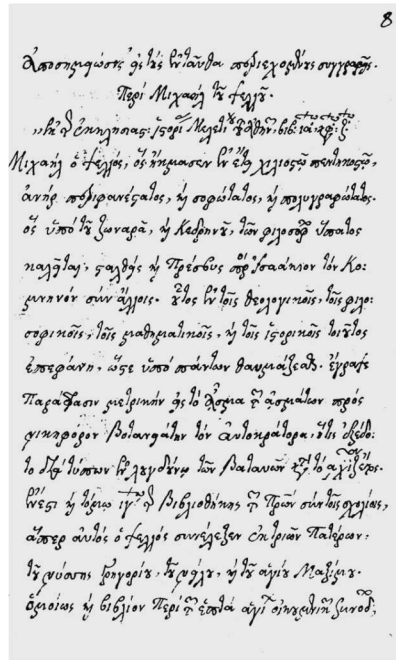 8
Ἀποσημειώσεις εἰς τοὺς ἐνταῦθα περιεχομένους συγγραφεῖς.
Περὶ Μιχαὴλ τοῦ ψελλοῦ.
ἐκ τῆς ἐκκλησιας: ἱστορί Μελετίου Ἀθην, βιβ: ια: κεφ: ζ
Μιχαὴλ ὁ ψελλός, ὃς ἤκμασεν ἐν ἔτει χιλιοστῷ πεντηκοστῷ,
ἀνὴρ περιφανέστατος, κὴ σοφώτατος, κὴ πολυγραφώτατος.
ὃς ὑπὸ τοῦ ζωναρᾶ, κὴ Κεδρηνοῦ, τῶν φιλοσόφ ὕπατος
καλεῖται, σταλθεὶς κὴ Πρέσβυς πρ Ἰσαάκιον τὸν Κο:
μνηνὸν σὺν ἄλλοις. οὗτος ἐν τοῖς θεολογικοῖς, τοῖς φιλο:
σοφικοῖς, τοῖς μαθηματικοῖς, κὴ τοῖς ἱστορικοῖς τοιοῦτος
ἐπεφάνη, ὥστε ὑπὸ πάντων θαυμάζεσθαι. ἔγραψε
Παράφρασιν μετρικὴν εἰς τὸ ᾎσμα τῶν ᾀσμάτων πρὸς
νικηφόρον Βοτανιάτην τὸν Αὐτοκράτορα, ἥτις ἐξεδό:
το διὰ τύπων ἐν λουγδούνῳ τῶν Βαταυῶν τὸ αχιζ ἔτος.
ἔνεστι κὴ τόμῳ ιγ τῆς Βιβλιοθήκης τῶν Πρων σὺν τοῖς σχολίοις,
ἅπερ αὐτὸς ὁ ψελλὸς συνέλεξεν ἐκ τριῶν Πατέρων,
τοῦ νύσσης Γρηγορίου, τοῦ νείλου, κὴ τοῦ ἁγίου Μαξίμου.
ὁμοίως κὴ βιβλίον Περὶ τῶν ἑπτὰ ἁγί οἰκουμενικ συνόδ,